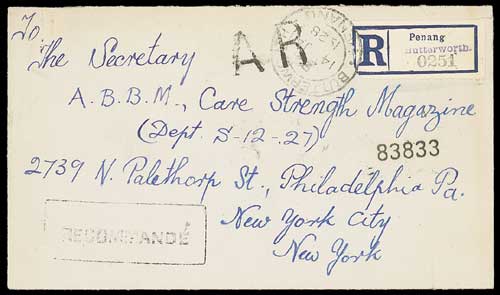 To
The Secretary
A.B.B.M., Care Strength Magazine
(Dept. S-12-27)
2739 N. Palethorp St., Philadelphia Pa.
New York City
New York
A R
R
Penang
Butterworth.
0251
83833
RECOMMANDÉ